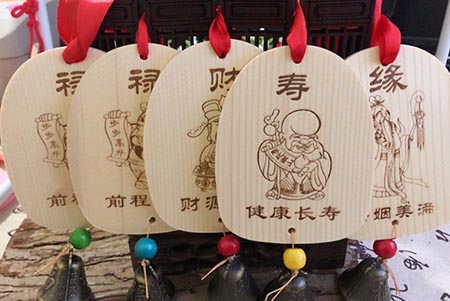 禄
步步高升
前程
禄
步步高升
前程
财
财源
寿
健康长寿
缘
美满